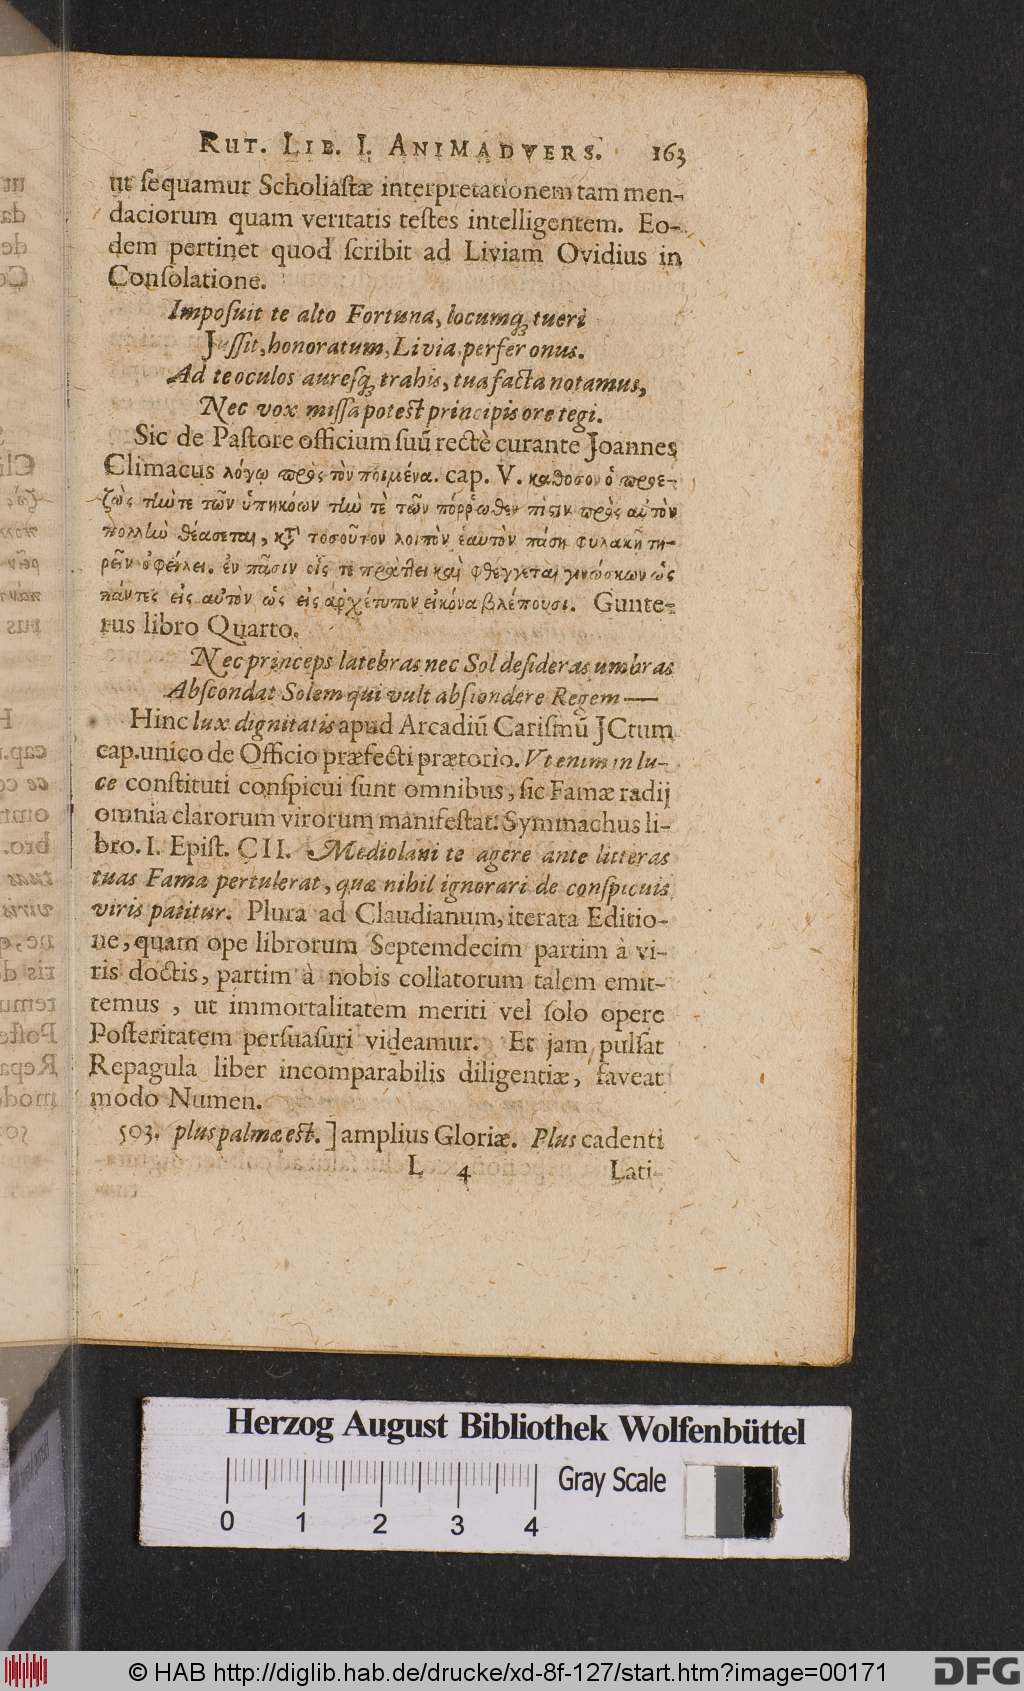 RUT. LIB. I. ANIMADVERS. 163
ut sequamur Scholiastæ interpretationem tam men-
daciorum quam veritatis testes intelligentem. Eo-
dem pertinet quod scribit ad Liviam Ovidius in
Consolatione.
Imposuit te alto Fortuna, locumq́; tueri
Jussit, honoratum, Livia, perfer onus.
Ad te oculos auresq́; trahis, tua facta notamus,
Nec vox missa potest principis ore tegi.
Sic de Pastore officium suũ rectè curante Joannes
Climacus λόγῳ πρὸς τὸν ποιμένα. cap. V. καθοσον ὁ προε-
ζὼς τίω τε τῶν ὑπηκόων τίω τὲ τῶν πόῤῥωθεν πίςιν πρὸς αὐτὸν
πολλίω θέασεται, κατ τοσοῦτον λοιπὸν ἑαυτὸν πάσῃ φυλακῇ τη-
ρεῖν ὀφείλει. ἐν πᾶσιν οἷς τε πράττει καὶ φθέγγεται γινώσκων ὡς
πάντες εἰς αὐτὸν ὡς εἰς ἀρχέτυπον εἰκόνα βλέπουσι. Gunte-
rus libro Quarto.
Nec princeps latebras nec Sol desideras umbras
Abscondat Solem qui vult absiondere Regem —
Hinc lux dignitatis apud Arcadiũ Carismũ JCtum
cap. unico de Officio præfecti prætorio. Vt enim in lu-
ce constituti conspicui sunt omnibus, sic Famæ radij
omnia clarorum virorum manifestat. Symmachus li-
bro. I. Epist. CII. Mediolani te agere ante litteras
tuas Fama pertulerat, quæ nihil ignorari de conspicuis
viris patitur. Plura ad Claudianum, iterata Editio-
ne, quam ope librorum Septemdecim partim à vi-
ris doctis, partim à nobis collatorum talem emit-
temus, ut immortalitatem meriti vel solo opere
Posteritatem persuasuri videamur. Et jam pulsat
Repagula liber incomparabilis diligentiæ, faveat
modo Numen.
503. plus palmæ est. ] amplius Gloriæ. Plus cadenti
L 4 Lati-
Herzog August Bibliothek Wolfenbüttel
Gray Scale
0 1 2 3 4
© HAB http://diglib.hab.de/drucke/xd-8f-127/start.htm?image=00171
DFG